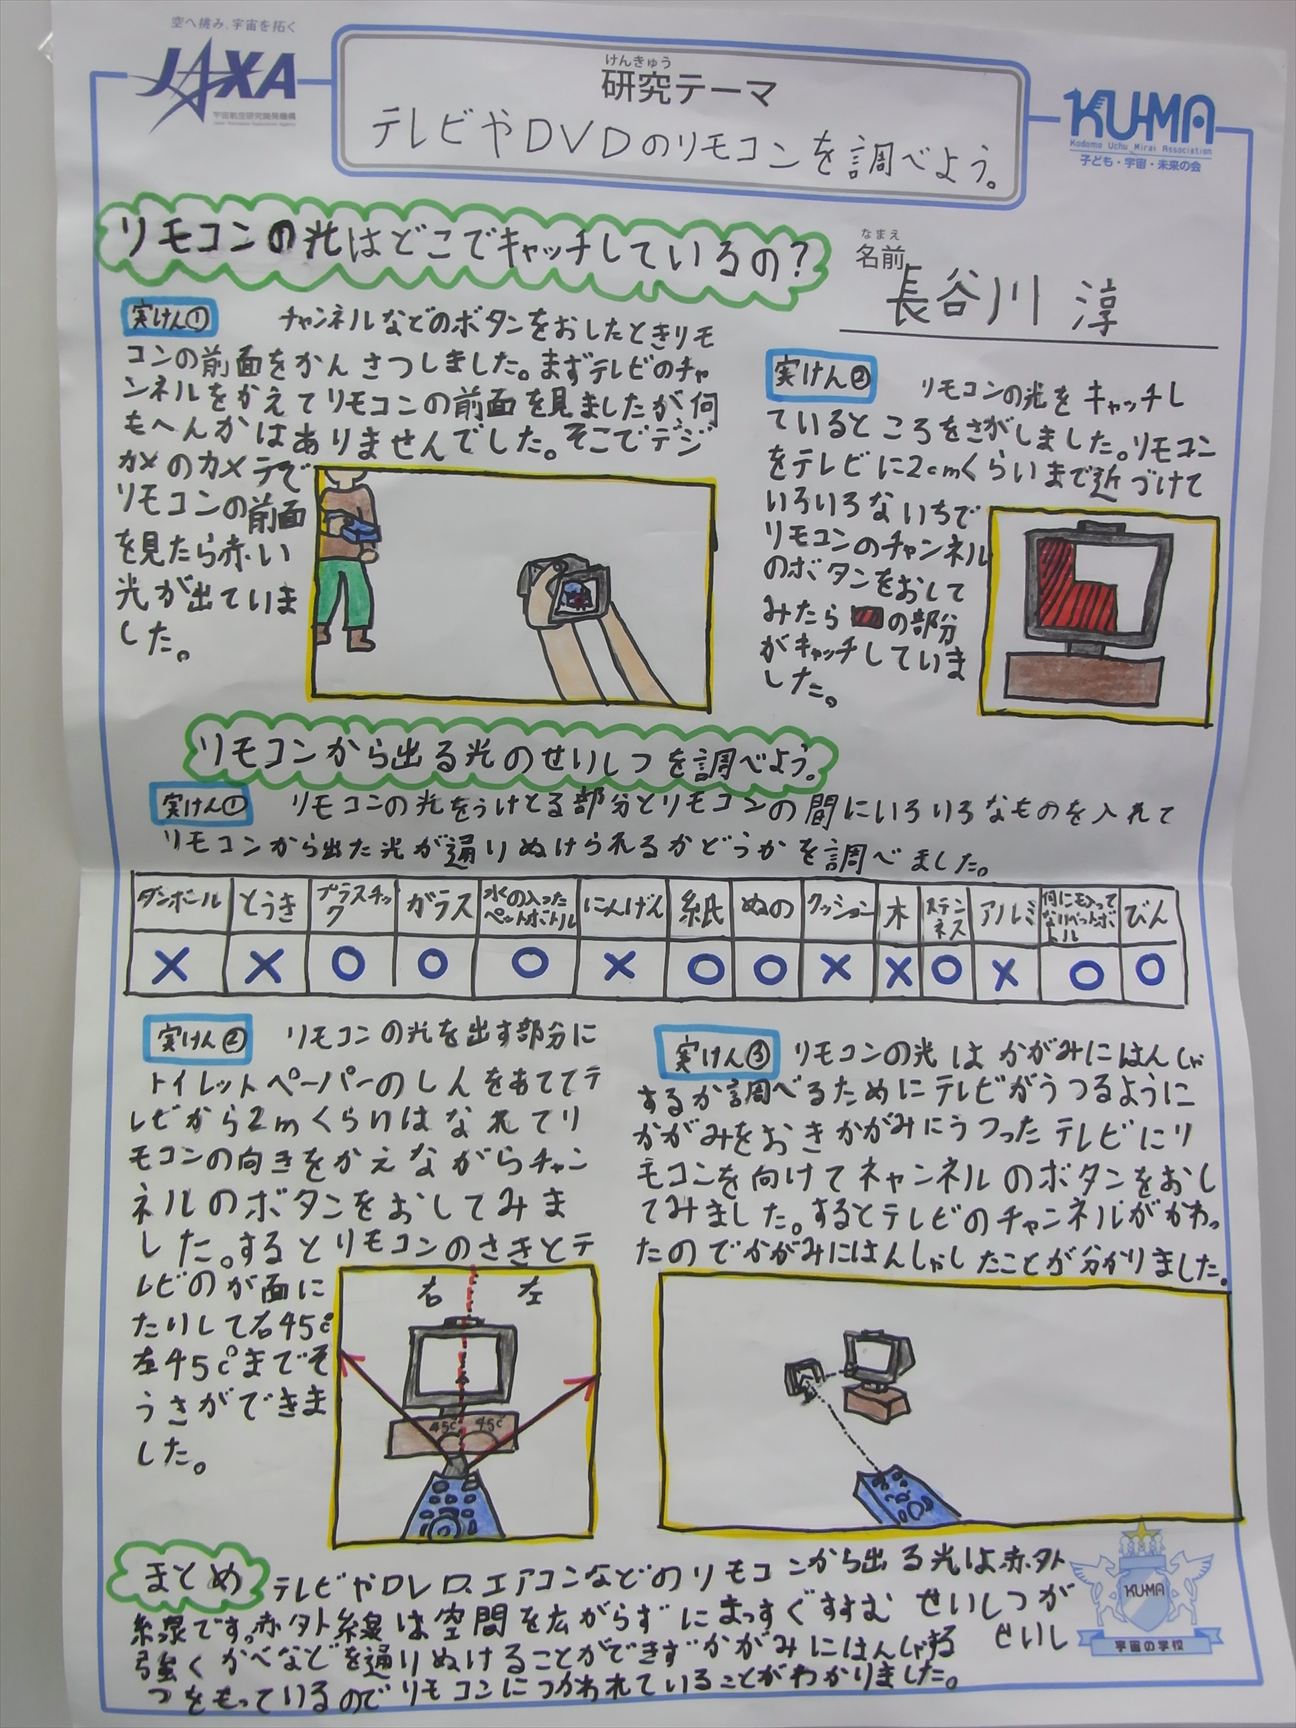 空へ挑み、宇宙を拓く
JAXA
宇宙航空研究開発機構
Japan Aerospace Exploration Agency
けんきゅう
研究テーマ
テレビやDVDのリモコンを調べよう。
KU-MA
Kodomo Uchu Mirai Association
子ども・宇宙・未来の会
リモコンの光はどこでキャッチしているの?
なまえ
名前
長谷川 淳
実けん①
チャンネルなどのボタンをおしたときリモ
コンの前面をかんさつしました。まずテレビのチャ
ンネルをかえてリモコンの前面を見ましたが何
もへんかはありませんでした。そこでデジ
カメのカメラで
リモコンの前面
を見たら赤い
光が出ていま
した。
実けん②
リモコンの光をキャッチし
ているところをさがしました。リモコン
をテレビに2cmくらいまで近づけて
いろいろないちで
リモコンのチャンネル
のボタンをおして
みたら の部分
がキャッチしていま
した。
リモコンから出る光のせいしつを調べよう。
実けん①
リモコンの光をうけとる部分とリモコンの間にいろいろなものを入れて
リモコンから出た光が通りぬけられるかどうかを調べました。
ダンボール とうき プラスチック ガラス 水の入ったペットボトル にんげん 紙 ぬの クッション 木 ステンネス アルミ 何にも入ってないペットボトル びん
× × ○ ○ ○ × ○ ○ × × ○ × ○ ○
実けん②
リモコンの光を出す部分に
トイレットペーパーのしんをあててテ
レビから2mくらいはなれてリ
モコンの向きをかえながらチャン
ネルのボタンをおしてみま
した。するとリモコンのさきとテ
レビのが面に
たいして右45℃
左45℃までそ
うさができま
した。
右 左
45℃ 45℃
実けん③
リモコンの光はかがみにはんしゃ
するか調べるためにテレビがうつるように
かがみをおきかがみにうつったテレビにリ
モコンを向けてチャンネルのボタンをおし
てみました。するとテレビのチャンネルがかわっ
たのでかがみにはんしゃしたことが分かりました。
まとめ
テレビやDVD、エアコンなどのリモコンから出る光は赤外
線です。赤外線は空間を広がらずにまっすぐすすむせいしつが
強くかべなどを通りぬけることができずかがみにはんしゃするせいし
つをもっているのでリモコンにつかわれていることがわかりました。
KU-MA
宇宙の学校